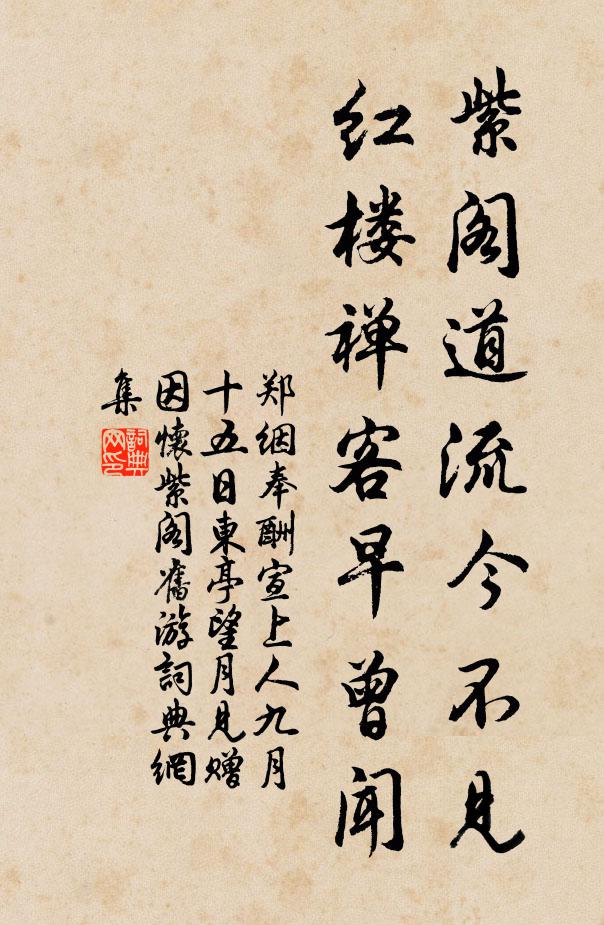 紫阁道流今不见
红楼禅客早曾闻
郑絪奉酬宣上人九月
十五日東亭望月见赠
因懷紫阁舊游詞典網
集
詞典
网印